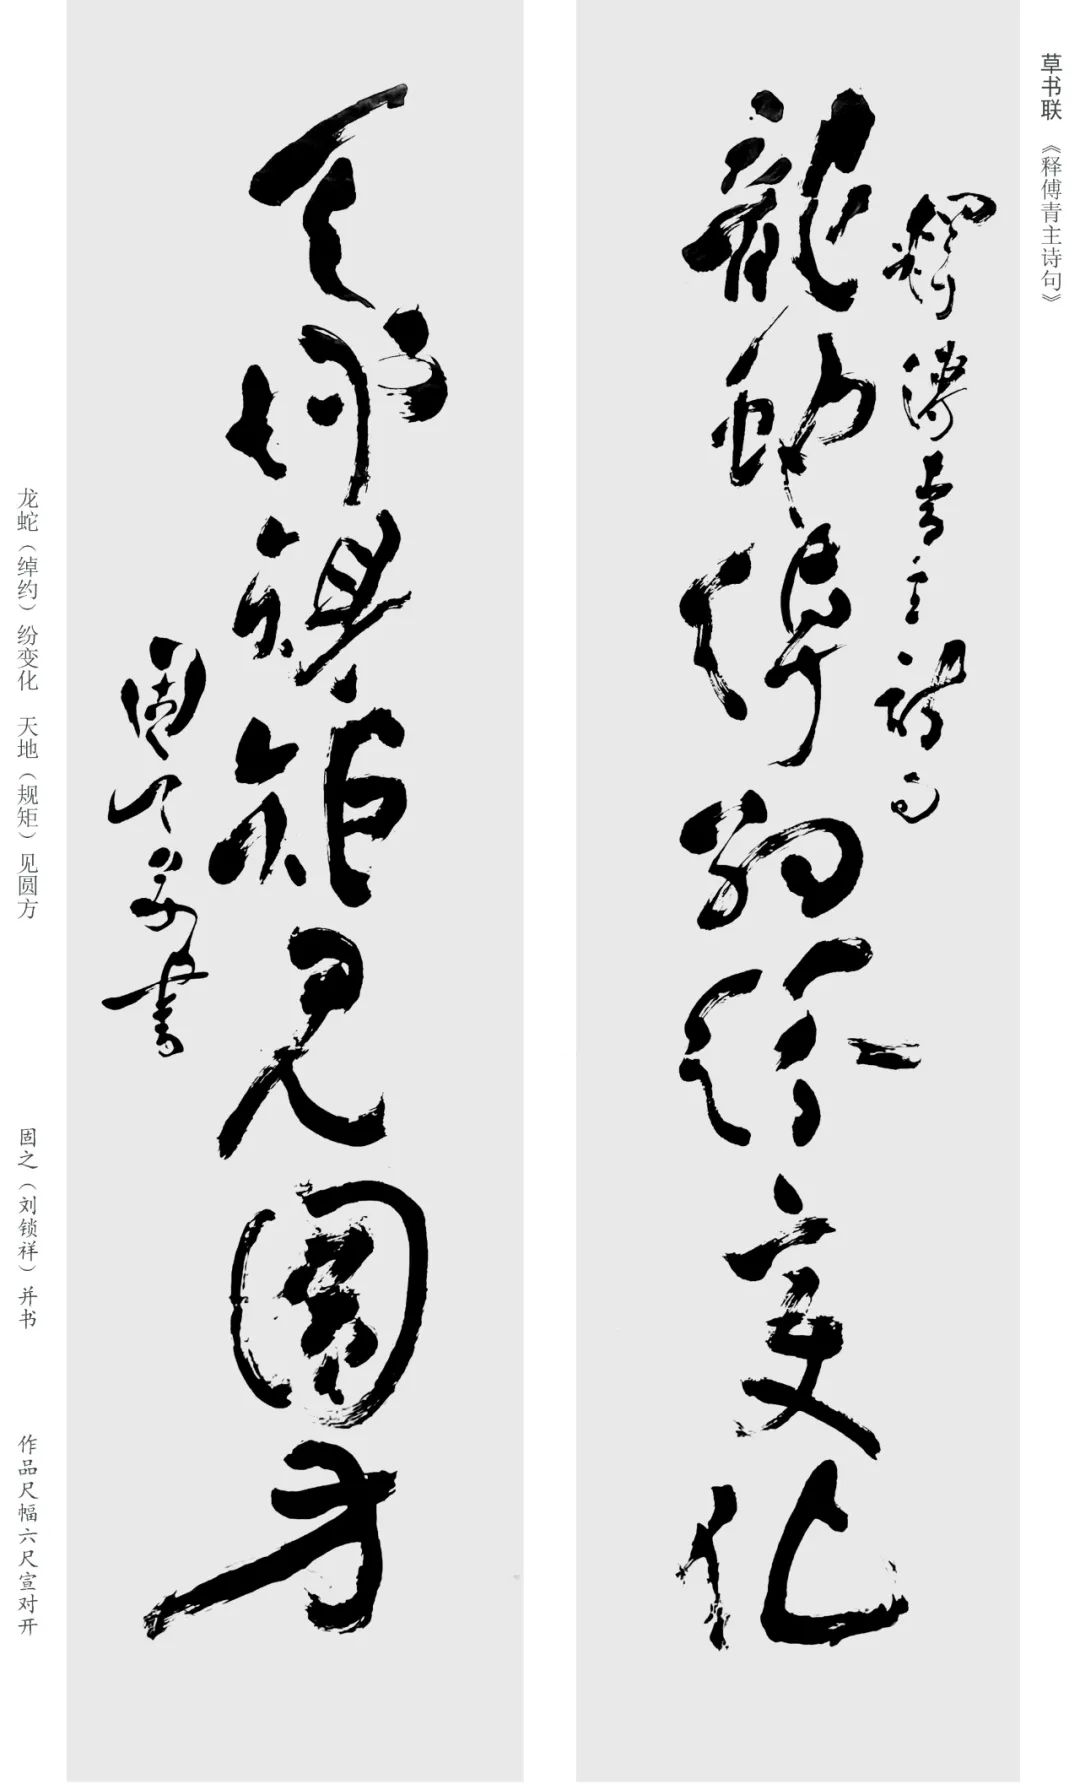 草书联 《释傅青主诗句》
釋傅青主詩句
龍蛇綽約紛變化
天地規矩見圓方
固之并書
龙蛇（绰约）纷变化 天地（规矩）见圆方 固之（刘锁祥）并书 作品尺幅六尺宣对开